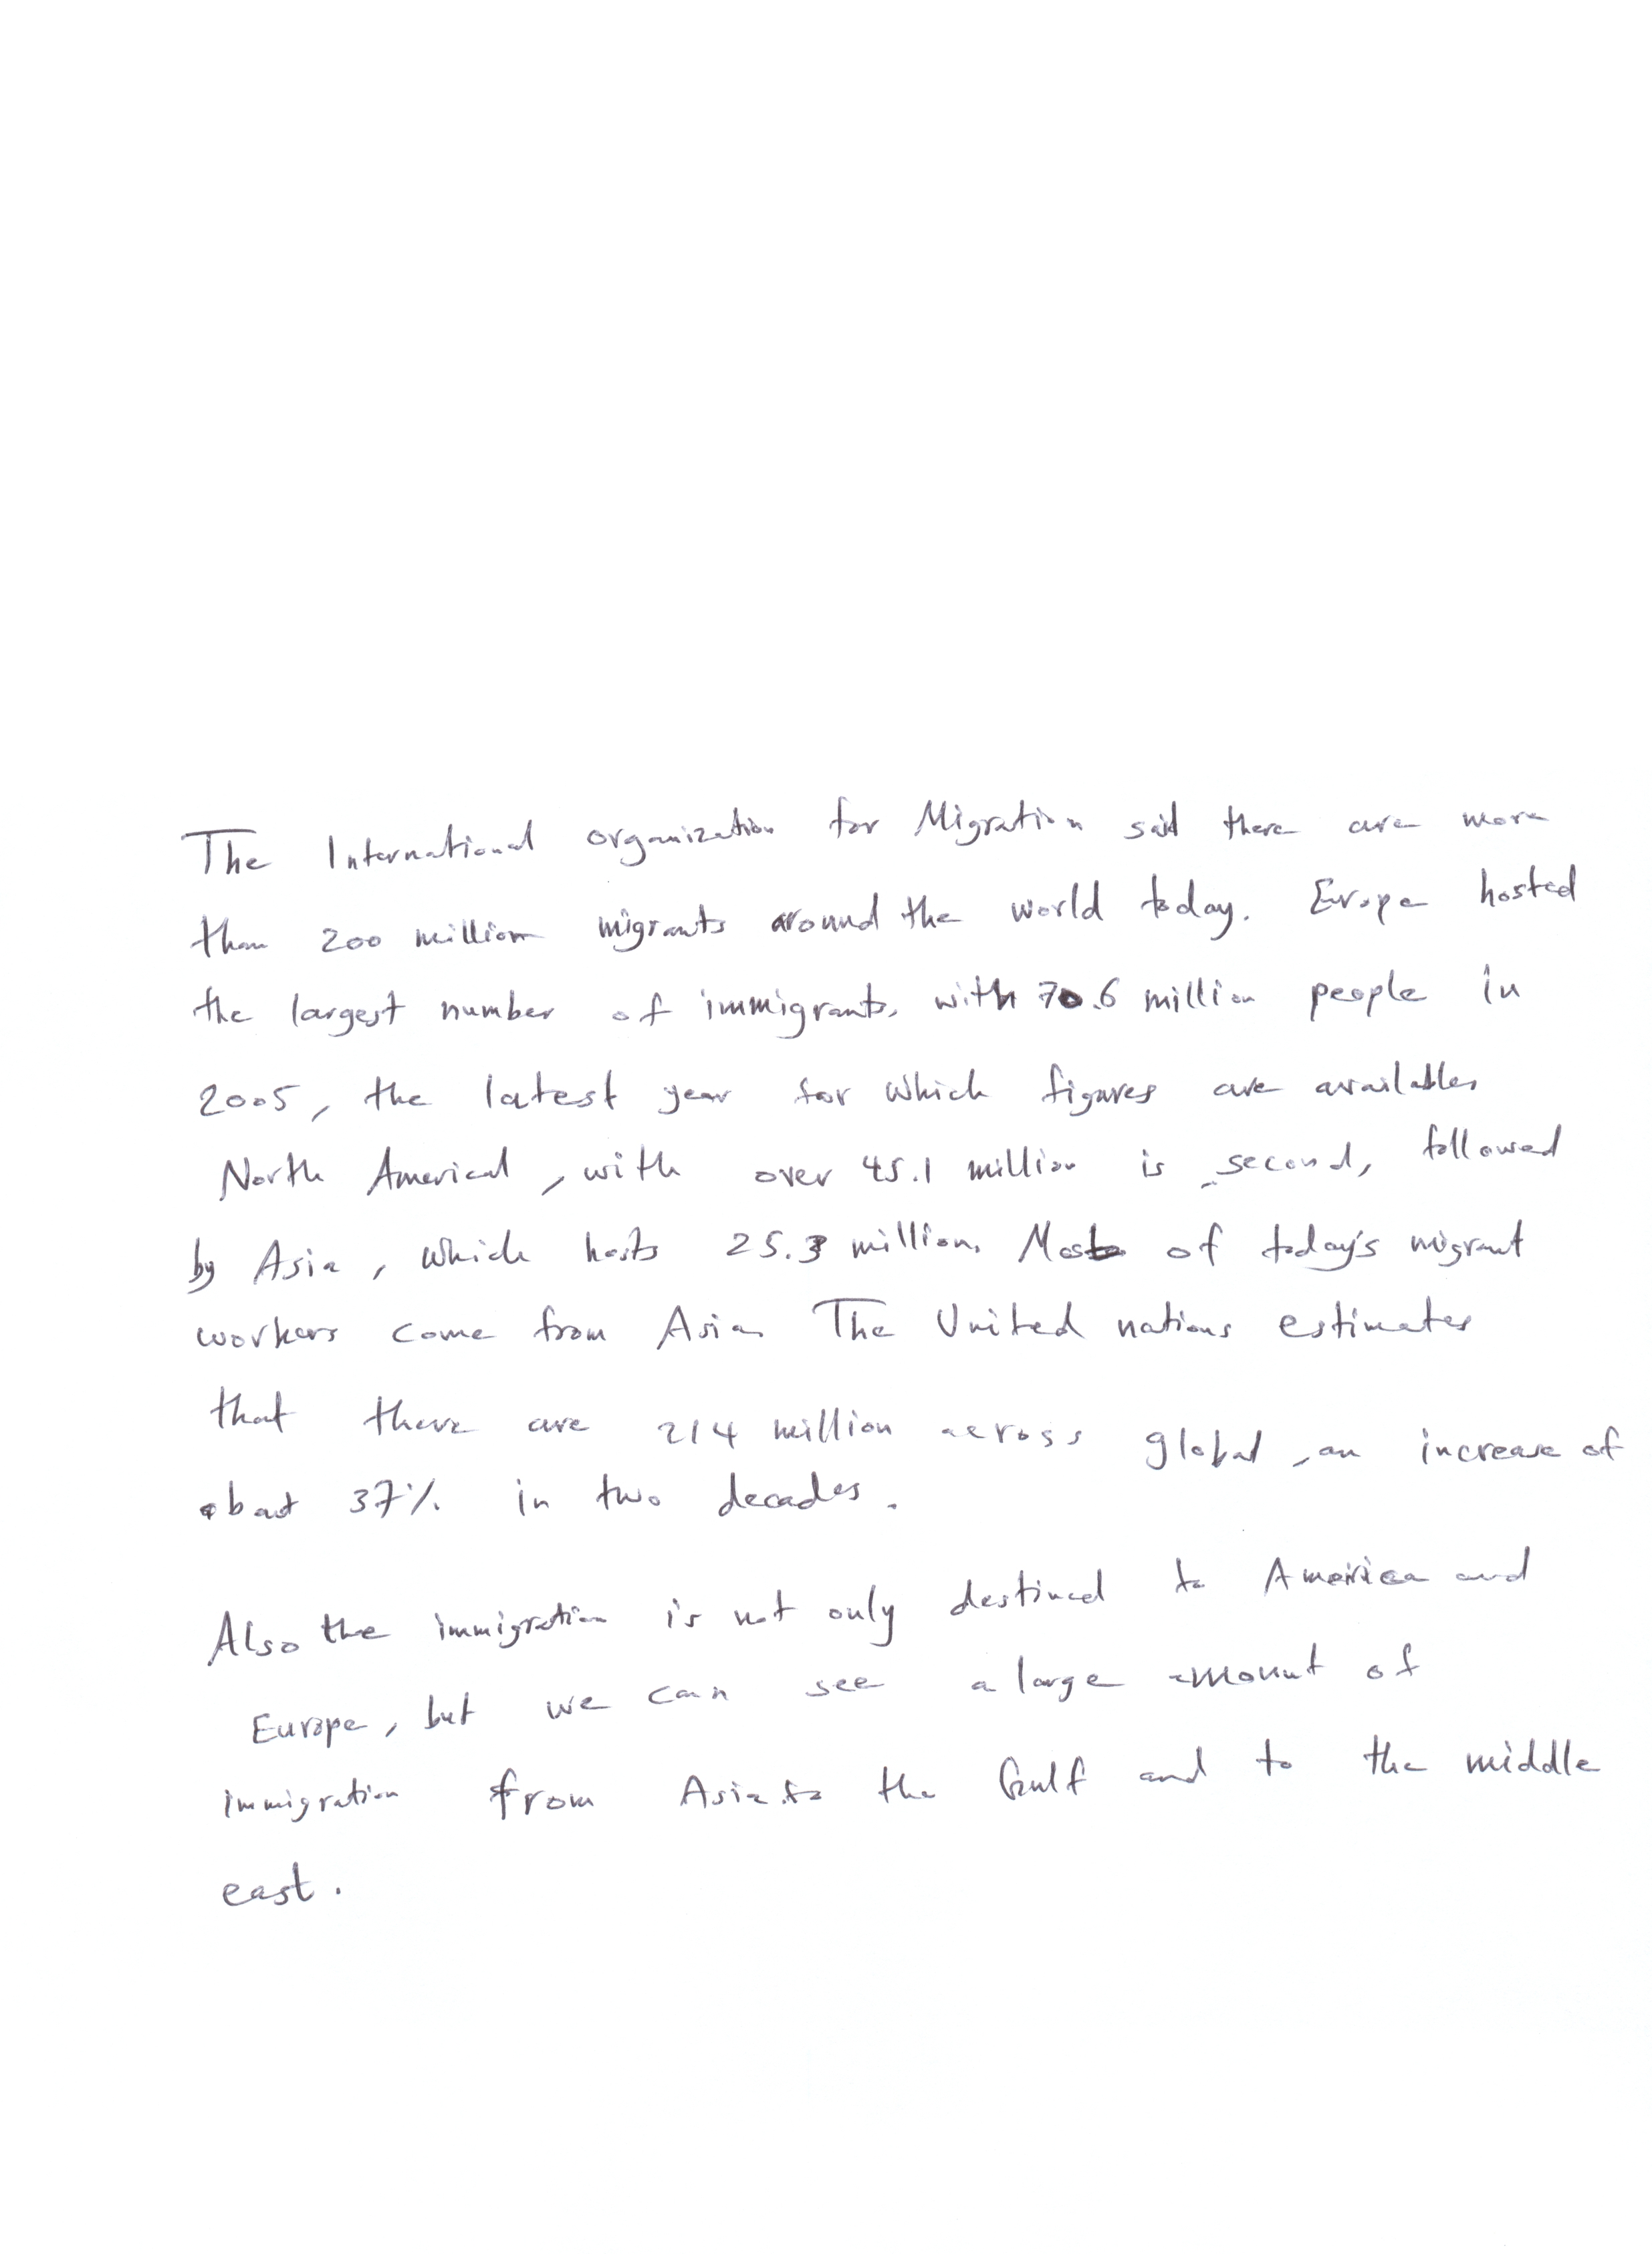 The International organization for Migration said there are more
than 200 million migrants around the world today. Europe hosted
the largest number of immigrants, with 70.6 million people in
2005, the latest year for which figures are available.
North American, with over 45.1 million is second, followed
by Asia, which hosts 25.3 million. Most of today's migrant
workers come from Asia. The United nations estimates
that there are 214 million across global, an increase of
about 37% in two decades.
Also the immigration is not only destined to America and
Europe, but we can see a large amount of
immigration from Asia to the Gulf and to the middle
east.